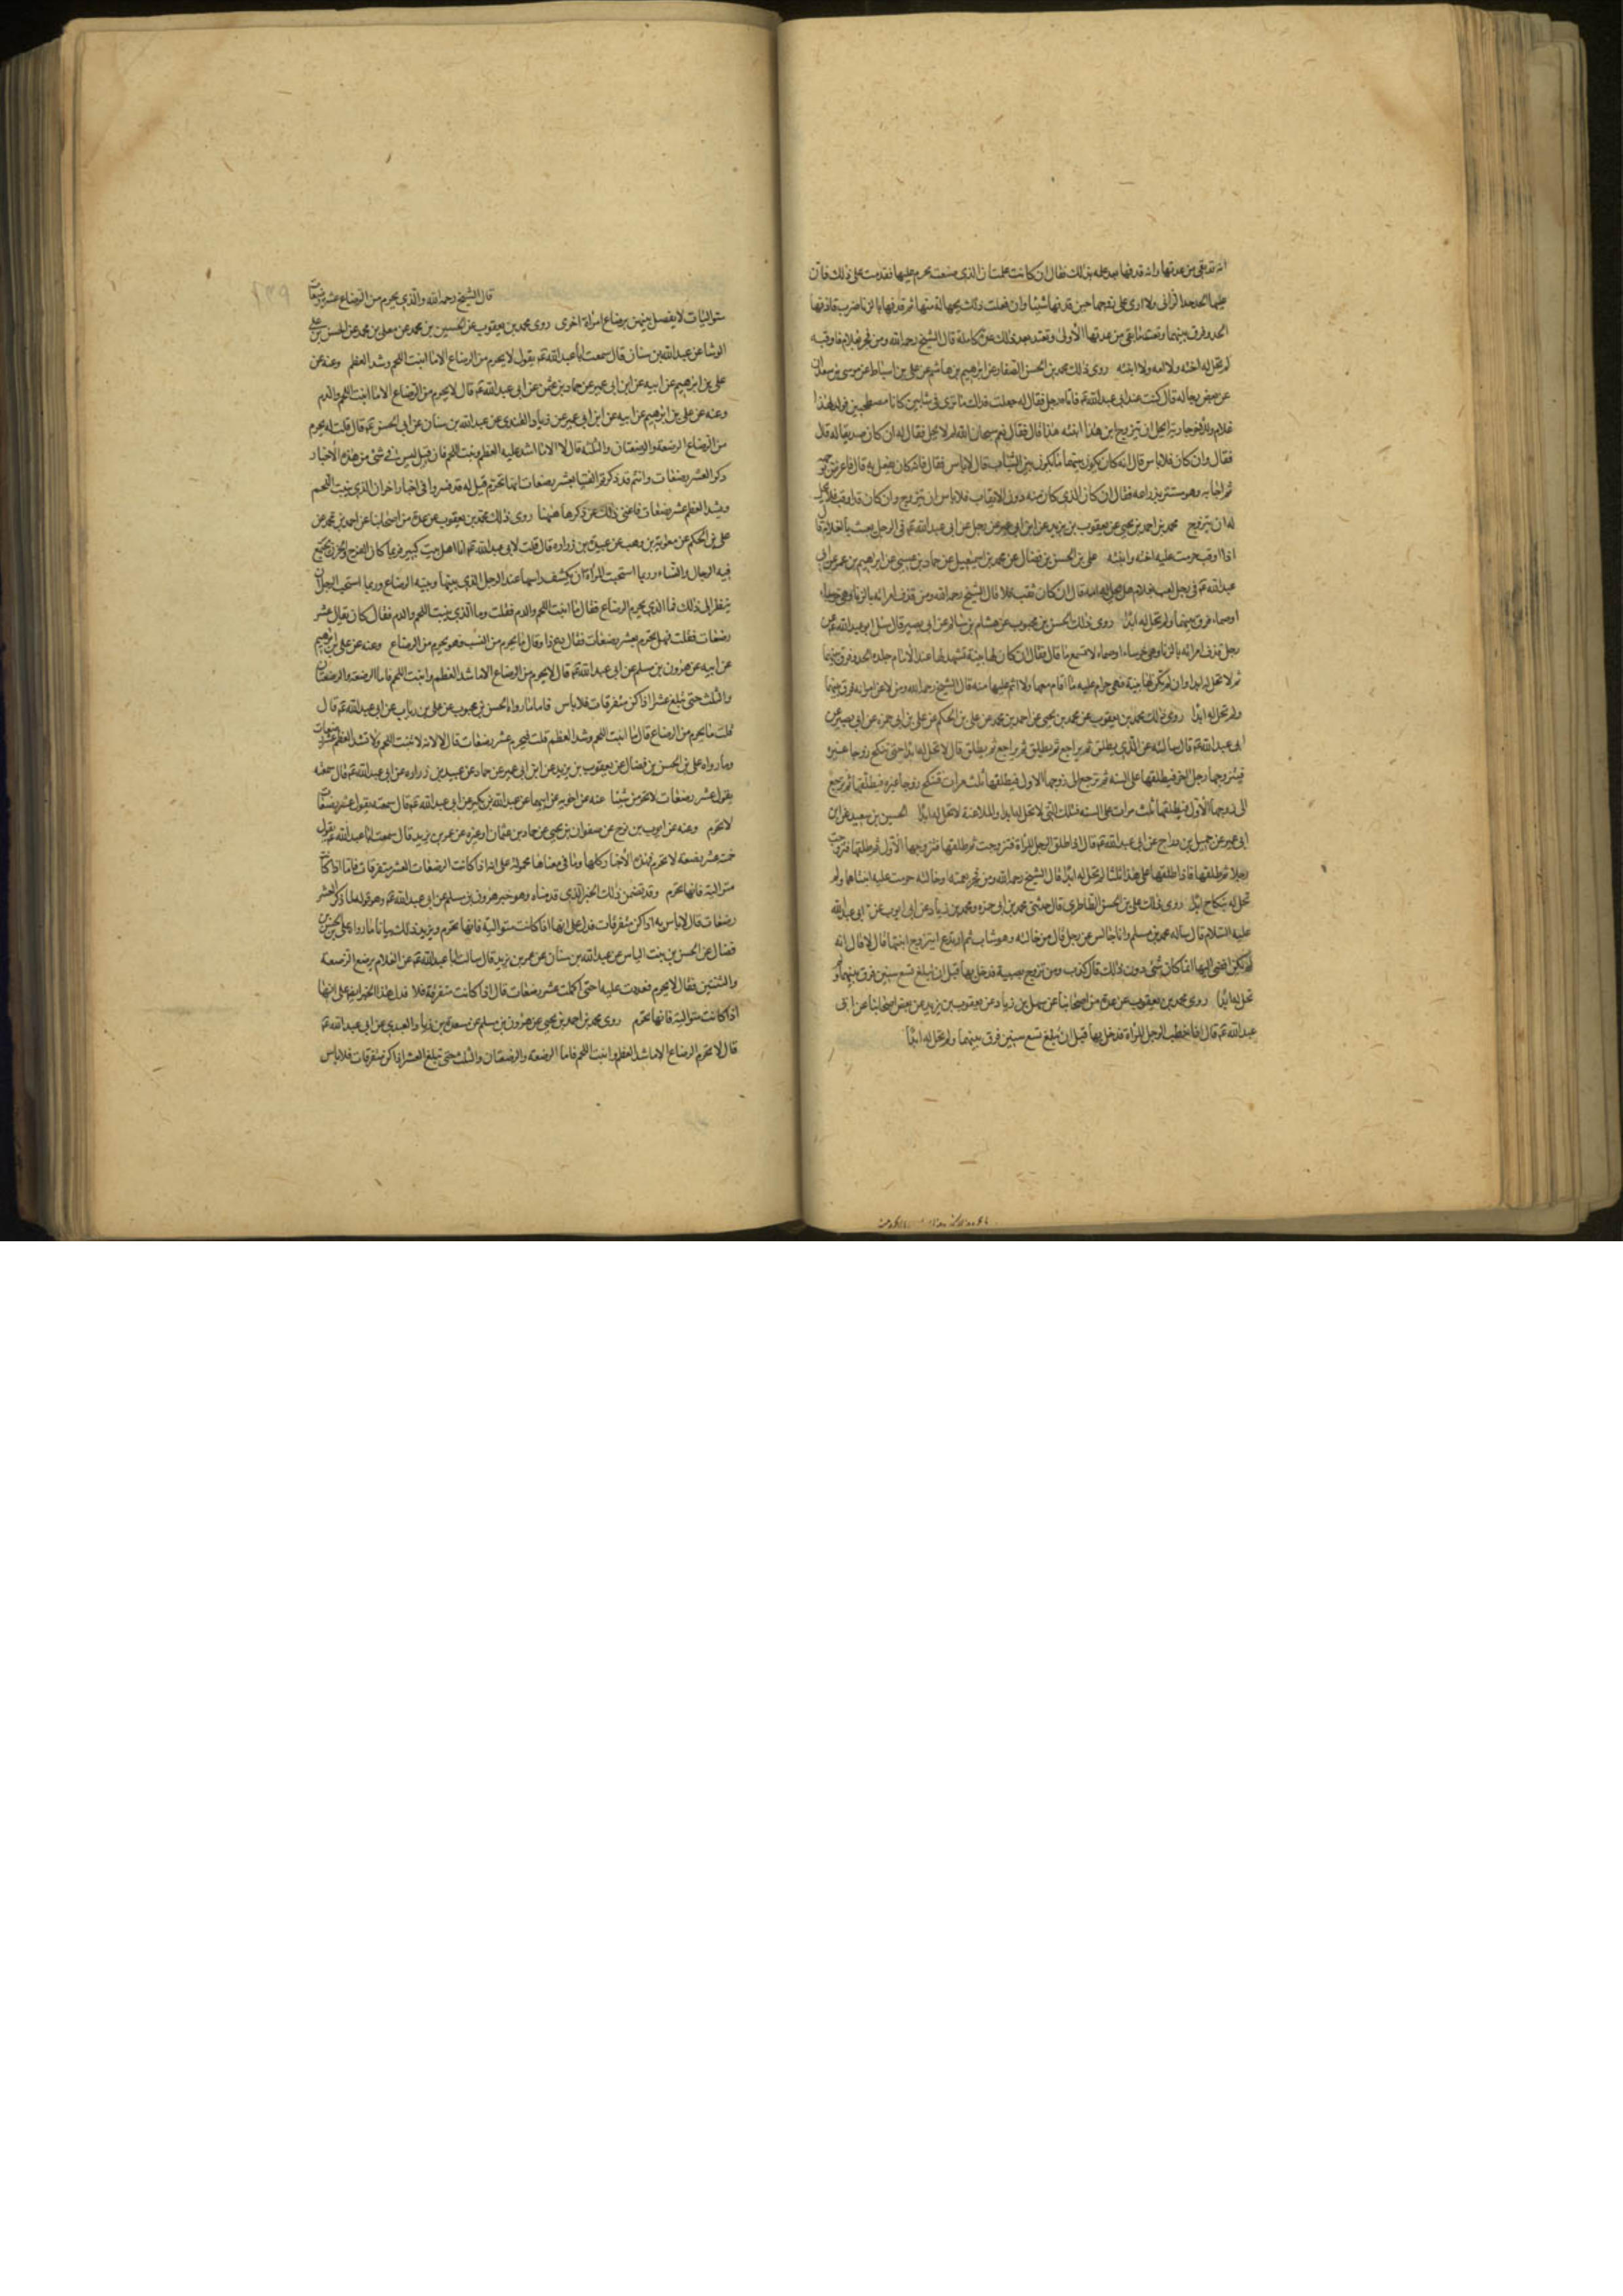 انه قد بقى من عدتها وانه قذفها بعد علمه بذلك فقال ان كانت علمت ان الذى صنعت يحرم عليها فقدمت على ذلك فان
عليها الحد حد الزانى ولا ارى على زوجها حين قذفها شيئا وان فعلت ذلك بجهالة منها ثم قذفها بالزنا ضرب قاذفها
الحد وفرق بينهما وتعتد ما بقى من عدتها الأولى وتعتد بعد ذلك عدة كاملة قال الشيخ رحمه الله ومن فجر بغلام فاوقبه
لم تحل له اخته ولا امه ولا ابنته روى ذلك محمد بن الحسن الصفار عن ابرهيم بن هاشم عن على بن اسباط عن موسى بن سعدان
عن بعض رجاله قال كنت عند ابى عبد الله ع فاتاه رجل فقال له جعلت فداك ما ترى فى شابين كانا مصطحبين فولد لهذا
غلام وللاخر جارية ايحل ان يتزوج ابن هذا ابنة هذا قال فقال نعم سبحان الله لم لا يحل فقال له ان كان صديقا له قال
فقال وان كان فلا باس قال انه كان يكون بينهما ما يكون بين الشباب قال لا باس فقال فانه كان يفعل به قال فاعرض بوجهه
ثم اجابه وهو مستتر بذراعه فقال ان كان الذى كان منه دون الايقاب فلا باس ان يتزوج وان كان قد اوقب فلا يحل
له ان يتزوج محمد بن احمد بن يحيى عن يعقوب بن يزيد عن ابن ابى عمير عن رجل عن ابى عبد الله ع فى الرجل يعبث بالغلام قال
اذا اوقب حرمت عليه اخته وابنته على بن الحسن بن فضال عن محمد بن اسمعيل عن حماد بن عيسى عن ابرهيم بن عمر عن ابى
عبد الله ع فى رجل لعب بغلام هل يحل له امه قال ان كان ثقب فلا قال الشيخ رحمه الله ومن قذف امراته بالزنا وهى خرساء
او صماء فرق بينهما ولم تحل له ابدا روى ذلك الحسن بن محبوب عن هشام بن سالم عن ابى بصير قال سئل ابو عبد الله ع عن
رجل قذف امراته بالزنا وهى خرساء او صماء لا تسمع ما قال فقال ان كان لها بينة تشهد لها عند الامام جلده الحد وفرق بينهما
ثم لا تحل له ابدا وان لم تكن لها بينة فهى حرام عليه ما اقام معها ولا اثم عليها منه قال الشيخ رحمه الله ومن لاعن امراته فرق بينهما
ولم تحل له ابدا روى ذلك محمد بن يعقوب عن محمد بن يحيى عن احمد بن محمد عن على بن الحكم عن على بن ابى حمزه عن ابى بصير عن
ابى عبد الله ع قال سالته عن الذى يطلق ثم يراجع ثم يطلق ثم يراجع ثم يطلق قال لا تحل له ابدا حتى تنكح زوجا غيره
فيتزوجها رجل اخر فيطلقها على السنه ثم ترجع الى زوجها الاول فيطلقها ثلث مرات فتنكح زوجا غيره فيطلقها ثم ترجع
الى زوجها الأول فيطلقها ثلث مرات على السنه فتلك التى لا تحل له ابدا والملاعنة لا تحل له ابدا الحسين بن سعيد عن ابن
ابى عمير عن جميل بن دراج عن ابى عبد الله ع قال اذا طلق الرجل المرأة فتزوجت ثم طلقها فتزوجها الأول ثم طلقها فتزوجت
رجلا ثم طلقها فاذا طلقها على هذا ثلثا لم تحل له ابدا قال الشيخ رحمه الله ومن فجر بعمته او خالته حرمت عليه ابنتاهما ولم
تحل له بنكاح ابدا روى ذلك على بن الحسن الطاطرى قال حدثنى محمد بن ابى حمزه ومحمد بن زياد عن ابى ايوب عن ابى عبد الله
عليه السلام قال ساله محمد بن مسلم وانا جالس عن رجل نال من خالته وهو شاب ثم ارتدع ايتزوج ابنتها قال لا قال انه
لم يكن افضى اليها انما كان شئ دون ذلك قال كذب ومن تزوج بصبية فدخل بها قبل ان تبلغ تسع سنين فرق بينهما ولم
تحل له ابدا روى محمد بن يعقوب عن عدة من اصحابنا عن سهل بن زياد عن يعقوب بن يزيد عن بعض اصحابنا عن ابى
عبد الله ع قال اذا خطب الرجل المراة فدخل بها قبل ان تبلغ تسع سنين فرق بينهما ولم تحل له ابدا
قال الشيخ رحمه الله والذى يحرم من الرضاع عشر رضعات
متواليات لا يفصل بينهن برضاع امراة اخرى روى محمد بن يعقوب عن الحسين بن محمد عن معلى بن محمد عن الحسن بن على
الوشا عن عبد الله بن سنان قال سمعت ابا عبد الله ع يقول لا يحرم من الرضاع الا ما انبت اللحم وشد العظم وعنه عن
على بن ابرهيم عن ابيه عن ابن ابى عمير عن حماد بن عثمن عن ابى عبد الله ع قال لا يحرم من الرضاع الا ما انبت اللحم والدم
وعنه عن على بن ابرهيم عن ابيه عن ابن ابى عمير عن زياد القندى عن عبد الله بن سنان عن ابى الحسن ع قال قلت له يحرم
من الرضاع الرضعة والرضعتان والثلثة قال لا الا ما اشتد عليه العظم ونبت اللحم فان قيل ليس فى شئ من هذه الأخبار
ذكر العشر رضعات وانتم قد ذكرتم الفتيا بعشر رضعات انها تحرم قيل له قد فسروا فى اخبار اخر ان الذى ينبت اللحم
ويشد العظم عشر رضعات فاغنى ذلك عن ذكرها ههنا روى ذلك محمد بن يعقوب عن عدة من اصحابنا عن احمد بن محمد عن
على بن الحكم عن معوية بن وهب عن عبيد بن زراره قال قلت لابى عبد الله ع انا اهل بيت كبير فربما كان الفرح والحزن يجتمع
فيه الرجال والنساء وربما استحيت المرأة ان تكشف راسها عند الرجل الذى بينها وبينه الرضاع وربما استحيى الرجل ان
ينظر الى ذلك فما الذى يحرم من الرضاع فقال ما انبت اللحم والدم فقلت وما الذى ينبت اللحم والدم فقال كان يقال عشر
رضعات فقلت فهل تحرم بعشر رضعات فقال دع ذا وقال ما يحرم من النسب فهو يحرم من الرضاع وعنه عن على بن ابرهيم
عن ابيه عن هرون بن مسلم عن ابى عبد الله ع قال لا يحرم من الرضاع الا ما شد العظم وانبت اللحم فاما الرضعة والرضعتان
والثلث حتى تبلغ عشرا اذا كن متفرقات فلا باس فاما ما رواه الحسن بن محبوب عن على بن رئاب عن ابى عبد الله ع قال
قلت ما يحرم من الرضاع قال ما انبت اللحم وشد العظم قلت فيحرم عشر رضعات قال لا لانه لا تنبت اللحم ولا تشد العظم عشر رضعات
وما رواه على بن الحسن بن فضال عن يعقوب بن يزيد عن ابن ابى عمير عن حماد عن عبيد بن زراره عن ابى عبد الله ع قال سمعته
يقول عشر رضعات لا تحرمن شيئا عنه عن اخويه عن ابيهما عن عبد الله بن بكير عن ابى عبد الله ع قال سمعته يقول عشر رضعات
لا تحرم وعنه عن ايوب بن نوح عن صفوان بن يحيى عن حماد بن عثمان او غيره عن عمر بن يزيد قال سمعت ابا عبد الله ع يقول
خمس عشرة رضعة لا تحرم فهذه الأخبار كلها وما فى معناها محمولة على انه اذا كانت الرضعات العشر متفرقات فاما اذا كانت
متوالية فانها تحرم وقد تضمن ذلك الخبر الذى قدمناه وهو خبر هرون بن مسلم عن ابى عبد الله ع وهو قوله لما ذكر العشر
رضعات قال لا باس به اذا كن متفرقات فدل على انها اذا كانت متوالية فانها تحرم ويزيد ذلك بيانا ما رواه على بن الحسن بن
فضال عن الحسن بن بنت الياس عن عبد الله بن سنان عن عمر بن يزيد قال سالت ابا عبد الله ع عن الغلام يرضع الرضعة
والثنتين فقال لا يحرم فعددت عليه حتى اكملت عشر رضعات قال اذا كانت متفرقة فلا فدل هذا الخبر ايضا على انها
اذا كانت متوالية فانها تحرم روى محمد بن احمد بن يحيى عن هرون بن مسلم عن مسعدة بن زياد العبدى عن ابى عبد الله ع
قال لا يحرم الرضاع الا ما شد العظم وانبت اللحم فاما الرضعة والرضعتان والثلث حتى تبلغ العشر اذا كن متفرقات فلا باس